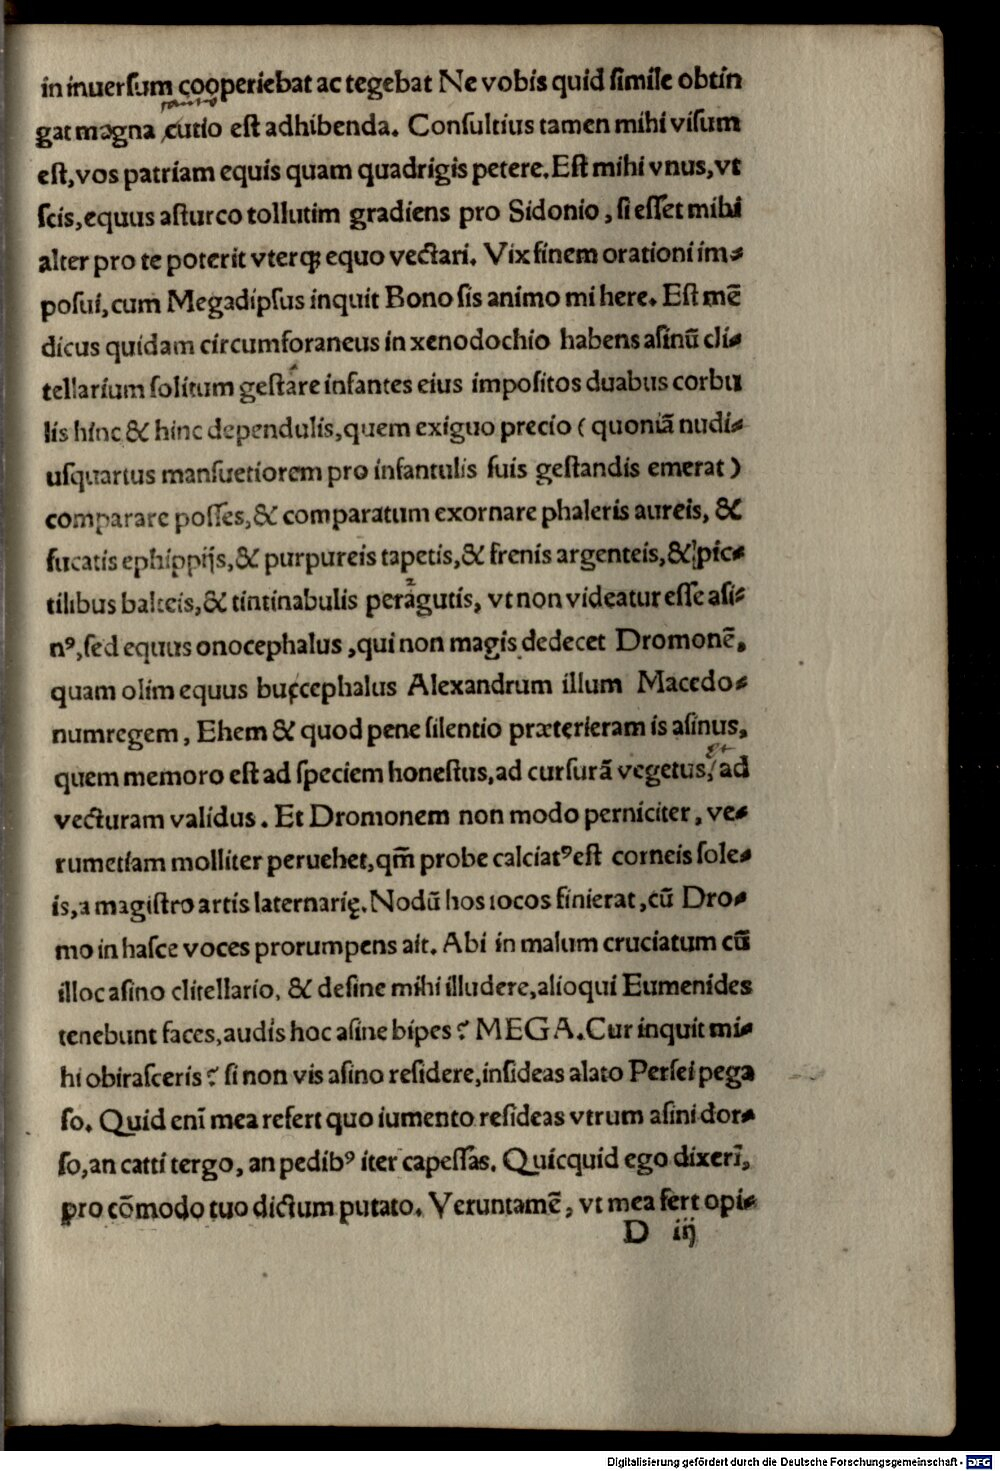 in inuerſum cooperiebat ac tegebat Ne vobis quid ſimile obtin
gat magna cutio eſt adhibenda. Conſultius tamen mihi viſum
eſt, vos patriam equis quam quadrigis petere. Eſt mihi vnus, vt
ſcis, equus aſturco tollutim gradiens pro Sidonio, ſi eſſet mihi
alter pro te poterit vterqꝫ equo vectari. Vix finem orationi im⸗
poſui, cum Megadipſus inquit Bono ſis animo mi here. Eſt mē
dicus quidam circumforaneus in xenodochio habens aſinū cli⸗
tellarium ſolitum geſtare infantes eius impoſitos duabus corbu
lis hinc & hinc dependulis, quem exiguo precio ( quoniā nudi⸗
uſquartus manſuetiorem pro infantulis ſuis geſtandis emerat )
comparare poſſes, & comparatum exornare phaleris aureis, &
fucatis ephippijs, & purpureis tapetis, & frenis argenteis, & pic⸗
tilibus balteis, & tintinabulis peragutis, vt non videatur eſſe aſi⸗
nꝰ, ſed equus onocephalus, qui non magis dedecet Dromonē,
quam olim equus buccephalus Alexandrum illum Macedo⸗
numregem, Ehem & quod pene ſilentio præterieram is aſinus,
quem memoro eſt ad ſpeciem honeſtus, ad curſurā vegetus, et ad
vecturam validus. Et Dromonem non modo perniciter, ve⸗
rumetiam molliter peruehet, qm̄ probe calciatꝰ eſt corneis ſole⸗
is, a magiſtro artis laternarię. Nodū hos iocos finierat, cū Dro⸗
mo in haſce voces prorumpens ait. Abi in malum cruciatum cū
illoc aſino clitellario, & deſine mihi illudere, alioqui Eumenides
tenebunt faces, audis hoc aſine bipes? MEGA. Cur inquit mi⸗
hi obiraſceris? ſi non vis aſino reſidere, inſideas alato Perſei pega
ſo. Quid enī mea refert quo iumento reſideas vtrum aſini dor⸗
ſo, an catti tergo, an pedibꝰ iter capeſſas. Quicquid ego dixerī,
pro cōmodo tuo dictum putato. Veruntamē, vt mea fert opi⸗
D iij
Digitalisierung gefördert durch die Deutsche Forschungsgemeinschaft - DFG